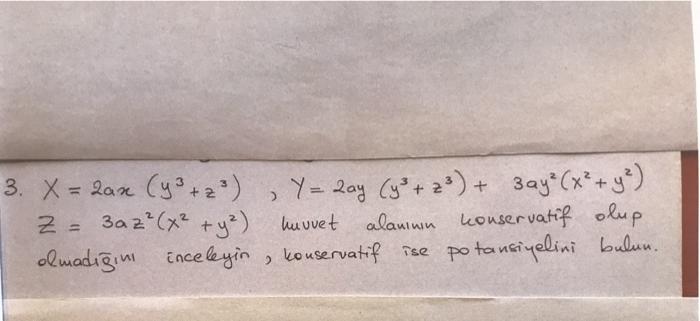 3. X = 2ax (y³ + z³) , Y = 2ay (y³ + z³) + 3ay² (x² + y²)
Z = 3az² (x² + y²) kuvvet alanının konservatif olup
olmadığını inceleyin, konservatif ise potansiyelini bulun.